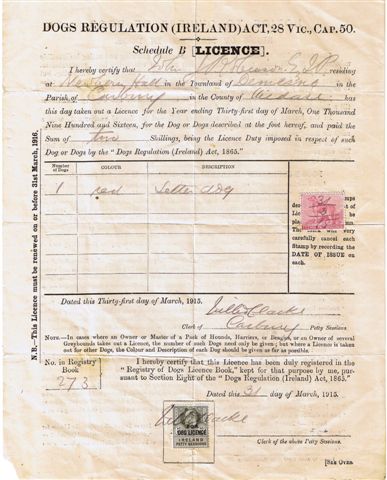 DOGS REGULATION (IRELAND) ACT, 28 VIC., CAP. 50.
Schedule B [LICENCE].
I hereby certify that John residing
at Newberry Hall in the Townland of Demesne in the
Parish of Carbury in the County of Kildare has
this day taken out a Licence for the Year ending Thirty-first day of March, One Thousand
Nine Hundred and Sixteen, for the Dog or Dogs described at the foot hereof, and paid the
Sum of two Shillings, being the Licence Duty imposed in respect of such
Dog or Dogs by the "Dogs Regulation (Ireland) Act, 1865."
Number of Dogs COLOUR DESCRIPTION
1 red Setter dog
carefully cancel each
Stamp by recording the
DATE OF ISSUE on
each.
Dated this Thirty-first day of March, 1915.
Clarke
Clerk of Carbury Petty Sessions
NOTE.—In cases where an Owner or Master of a Pack of Hounds, Harriers, or Beagles, or an Owner of several
Greyhounds takes out a Licence, the number of Dogs need only be given; but where a Licence is taken
out for other Dogs, the Colour and Description of each Dog should be given as far as possible.
No. in Registry
Book
273
I hereby certify that this Licence has been duly registered in the
"Registry of Dogs Licence Book," kept for that purpose by me, pursuant
to Section Eight of the "Dogs Regulation (Ireland) Act, 1865."
Dated this 31 day of March, 1915.
Clarke
DOG LICENCE
IRELAND
PETTY SESSIONS
Clerk of the above Petty Sessions.
[SEE OVER
N.B.—This Licence must be renewed on or before 31st March, 1916.